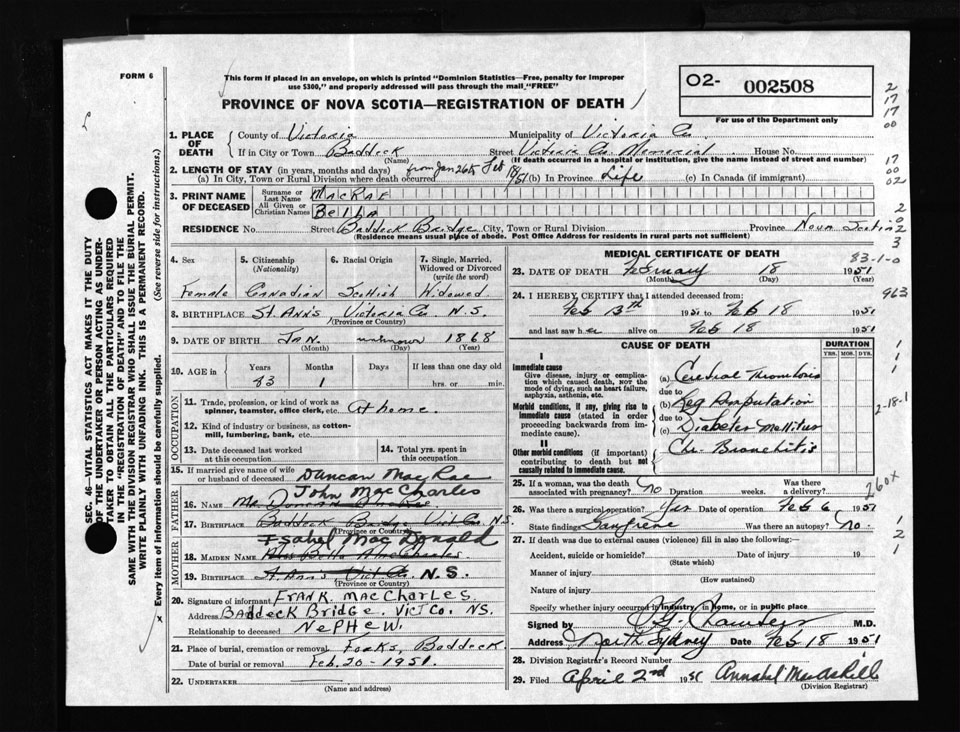 FORM 6
This form if placed in an envelope, on which is printed "Dominion Statistics—Free, penalty for improper
use $300," and properly addressed will pass through the mail "FREE"
PROVINCE OF NOVA SCOTIA—REGISTRATION OF DEATH
O2- 002508
For use of the Department only
2
17
17
00
17
00
02
2
0
2
3
83-1-0
963
1
1
1
2-18-1
260x
1
2
SEC. 46—VITAL STATISTICS ACT MAKES IT THE DUTY
OF THE UNDERTAKER OR PERSON ACTING AS UNDER-
TAKER TO OBTAIN ALL THE PARTICULARS REQUIRED
IN THE "REGISTRATION OF DEATH" AND TO FILE THE
SAME WITH THE DIVISION REGISTRAR WHO SHALL ISSUE THE BURIAL PERMIT.
WRITE PLAINLY WITH UNFADING INK. THIS IS A PERMANENT RECORD.
Every item of information should be carefully supplied. (See reverse side for instructions.)
1. PLACE OF DEATH
County of Victoria Municipality of Victoria Co.
If in City or Town Baddeck Street Victoria Co. Memorial House No.
(Name) (If death occurred in a hospital or institution, give the name instead of street and number)
2. LENGTH OF STAY (in years, months and days) from Jan 26th Feb 18/51
(a) In City, Town or Rural Division where death occurred (b) In Province Life (c) In Canada (if immigrant)
3. PRINT NAME OF DECEASED
Surname or Last Name MacRae
All Given or Christian Names Bella
RESIDENCE No. Street Baddeck Bridge City, Town or Rural Division Province Nova Scotia
(Residence means usual place of abode. Post Office Address for residents in rural parts not sufficient)
4. Sex 5. Citizenship (Nationality) 6. Racial Origin 7. Single, Married, Widowed or Divorced (write the word)
Female Canadian Scottish Widowed
8. BIRTHPLACE St. Ann's, Victoria Co. N.S.
(Province or Country)
9. DATE OF BIRTH Jan. unknown 1868
(Month) (Day) (Year)
10. AGE in Years Months Days If less than one day old
83 1 hrs. or min.
OCCUPATION
11. Trade, profession, or kind of work as spinner, teamster, office clerk, etc. at home.
12. Kind of industry or business, as cotton-mill, lumbering, bank, etc.
13. Date deceased last worked at this occupation 14. Total yrs. spent in this occupation
15. If married give name of wife or husband of deceased Duncan MacRae
FATHER
John MacCharles
16. NAME
17. BIRTHPLACE Baddeck Bridge Vict Co. N.S.
(Province or Country)
MOTHER
Isabel MacDonald
18. MAIDEN NAME
19. BIRTHPLACE St. Ann's Vict Co. N.S.
(Province or Country)
20. Signature of informant Frank MacCharles
Address Baddeck Bridge. Vict Co. NS.
Relationship to deceased Nephew.
21. Place of burial, cremation or removal Forks, Baddeck
Date of burial or removal Feb. 20 - 1951.
22. UNDERTAKER
(Name and address)
MEDICAL CERTIFICATE OF DEATH
23. DATE OF DEATH February 18 1951
(Month) (Day) (Year)
24. I HEREBY CERTIFY that I attended deceased from:
Feb 13th 1951 to Feb 18 1951
and last saw her alive on Feb 18 1951
CAUSE OF DEATH DURATION
YRS. MOS. DYS.
I
Immediate cause
Give disease, injury or complication which caused death, not the mode of dying, such as heart failure, asphyxia, asthenia, etc.
(a) Cerebral Thrombosis
due to
Morbid conditions, if any, giving rise to immediate cause (stated in order proceeding backwards from immediate cause).
(b) Leg Amputation
due to
(c) Diabetes Mellitus
II
Other morbid conditions (if important) contributing to death but not causally related to immediate cause.
Chr. Bronchitis
25. If a woman, was the death associated with pregnancy? No Duration weeks. Was there a delivery?
26. Was there a surgical operation? Yes Date of operation Feb 6 1951
State finding Gangrene Was there an autopsy? No.
27. If death was due to external causes (violence) fill in also the following:—
Accident, suicide or homicide? Date of injury 19
(State which)
Manner of injury
(How sustained)
Nature of injury
Specify whether injury occurred in industry, in home, or in public place
Signed by M.D.
Address North Sydney Date Feb 18 1951
28. Division Registrar's Record Number
29. Filed April 2nd 1951 Annabel MacAskill
(Division Registrar)